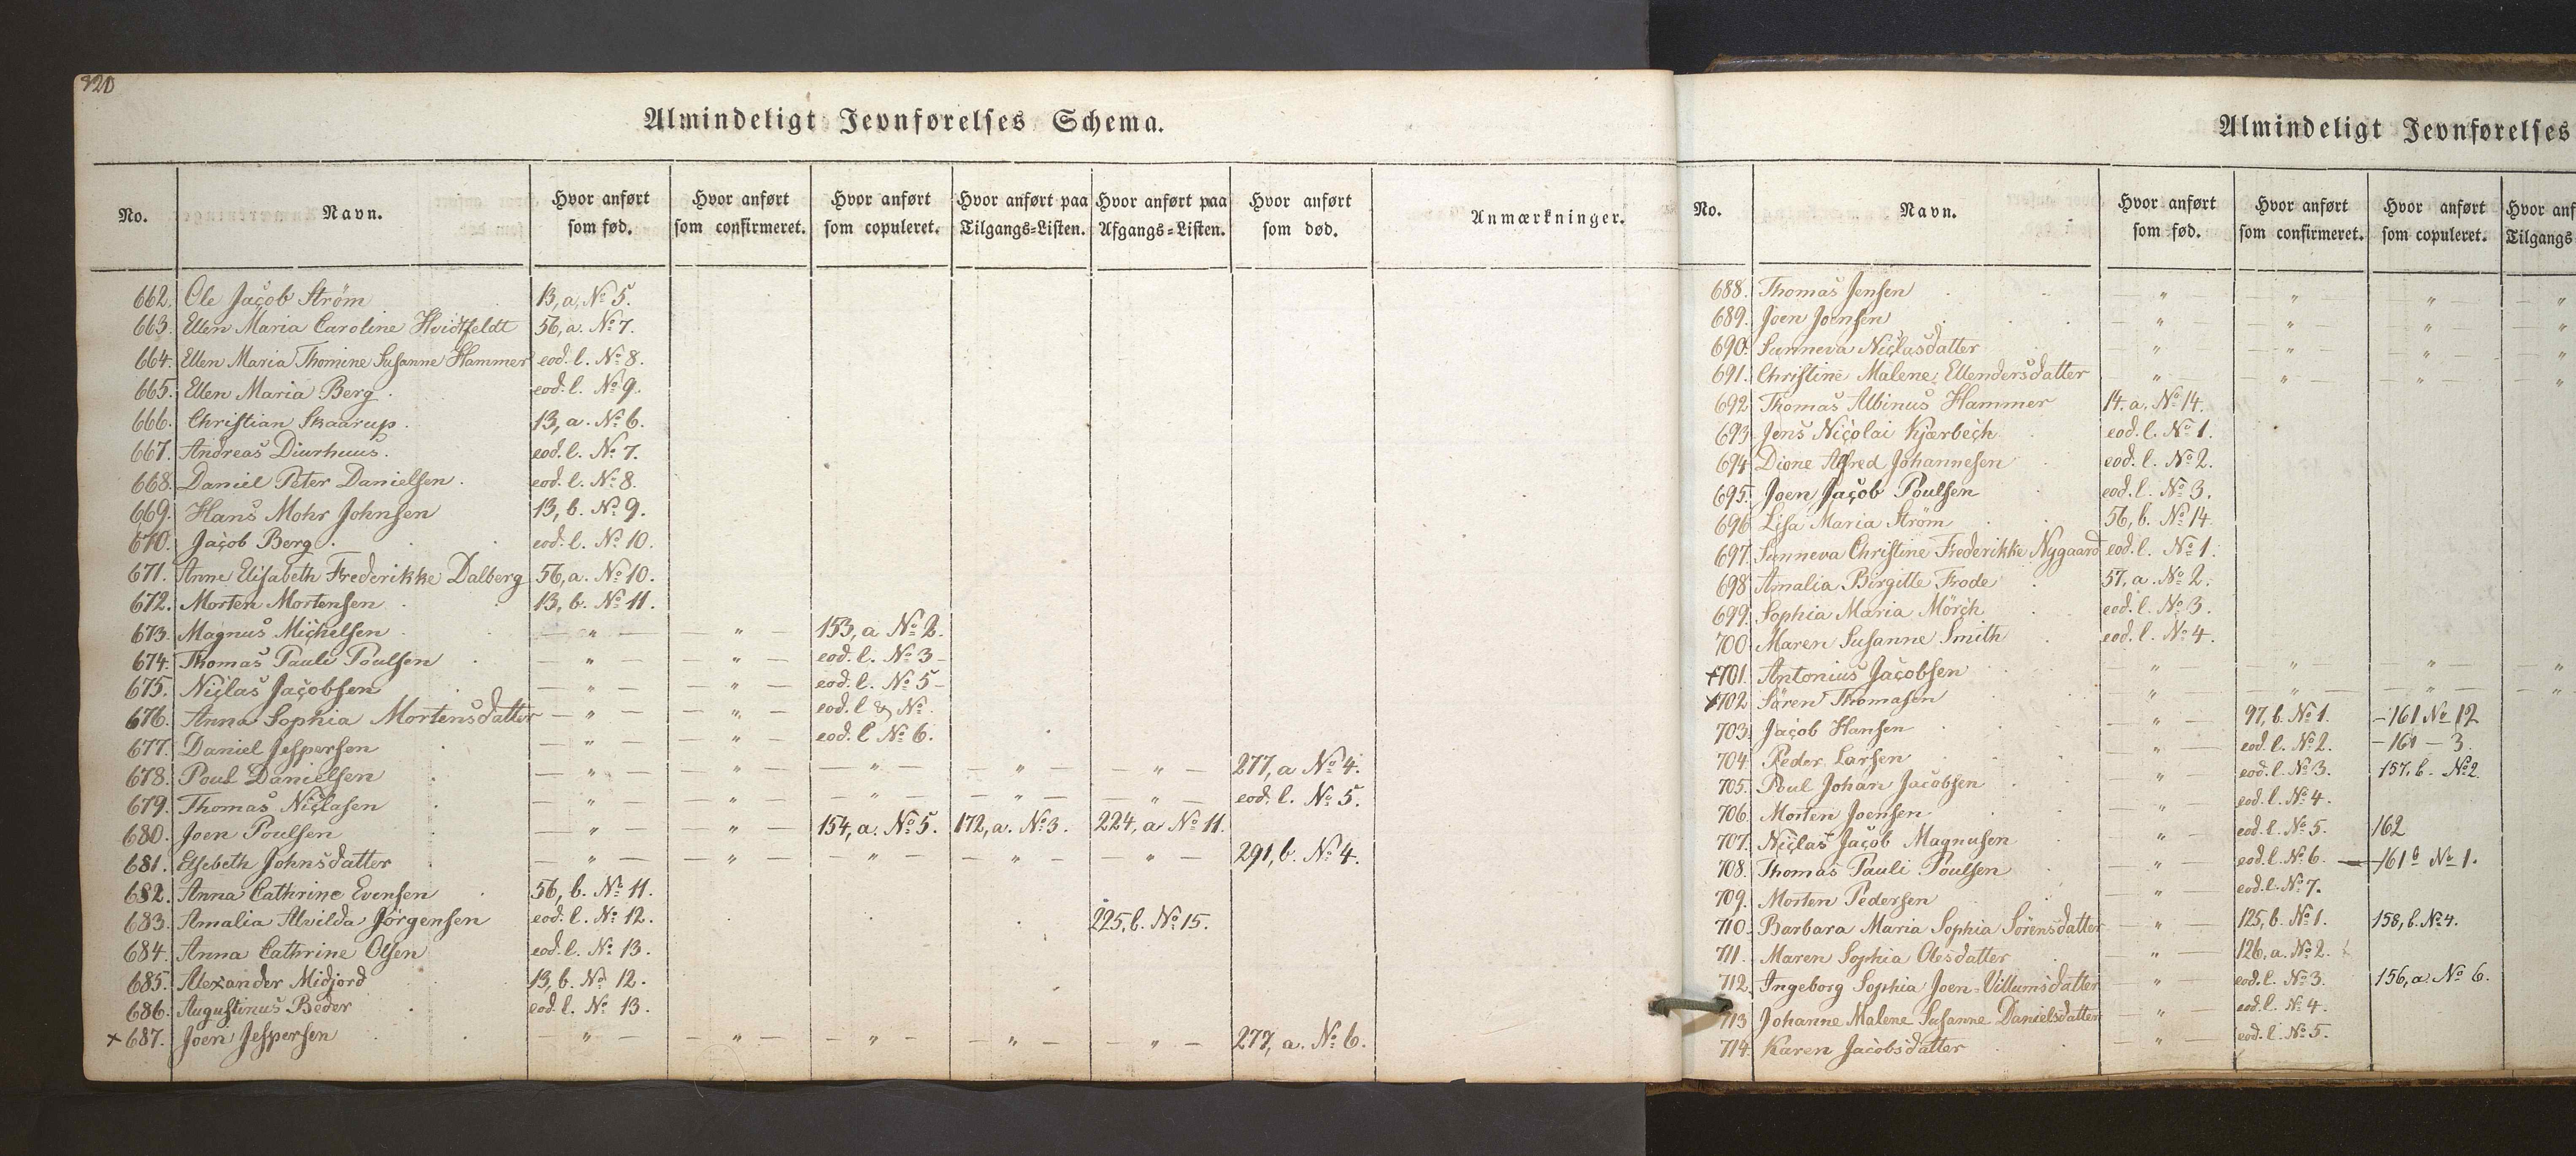 320
Almindeligt Jevnførelses Schema.
No. Navn. Hvor anført som fød. Hvor anført som confirmeret. Hvor anført som copuleret. Hvor anført paa Tilgangs-Listen. Hvor anført paa Afgangs-Listen. Hvor anført som død. Anmærkninger.
662. Ole Jacob Strøm 13, a, No 5.
663. Ellen Maria Caroline Hvidtfeldt 56, a. No 7.
664. Ellen Maria Thomine Susanne Hammer eod. l. No 8.
665. Ellen Maria Berg. eod. l. No 9.
666. Christian Skaarup. 13, a. No 6.
667. Andreas Diurhuus. eod. l. No 7.
668. Daniel Peter Danielsen. eod. l. No 8.
669. Hans Mohr Johnsen 13, b. No 9.
670. Jacob Berg. eod. l. No 10.
671. Anne Elisabeth Frederikke Dalberg 56, a. No 10.
672. Morten Mortensen 13, b. No 11.
673. Magnus Michelsen — " — — " — 153, a No 2.
674. Thomas Pauli Poulsen — " — — " — eod. l. No 3 –
675. Niclas Jacobsen — " — — " — eod. l. No 5 –
676. Anna Sophia Mortensdatter — " — — " — eod. l & No.
677. Daniel Jespersen — " — — " — eod. l No 6.
678. Poul Danielsen — " — — " — — " — — " — — " — 277, a No 4.
679. Thomas Niclasen — " — — " — — " — — " — — " — eod. l. No 5.
680. Joen Poulsen — " — — " — 154, a. No 5. 172, a. No 3. 224, a No 11.
681. Elsebeth Johnsdatter — " — — " — — " — — " — — " — 291, b. No 4.
682. Anna Cathrine Evensen 56, b. No 11.
683. Amalia Alvilda Jörgensen eod. l. No 12. 225, b. No 15.
684. Anna Cathrine Olsen eod. l. No 13.
685. Alexander Midjord 13, b. No 12.
686. Augustinus Beder eod. l. No 13.
+ 687. Joen Jespersen — " — — " — — " — — " — — " — 277, a. No 6.
Almindeligt Jevnførelses
No. Navn. Hvor anført som fød. Hvor anført som confirmeret. Hvor anført som copuleret. Hvor anf Tilgangs
688. Thomas Jensen — " — — " — — " — — "
689. Joen Joensen — " — — " — — " — — "
690. Sunneva Niclasdatter — " — — " — — " — — "
691. Christine Malene Ellendersdatter — " — — " — — " — — "
692 Thomas Albinus Hammer 14. a. No 14.
693. Jens Nicolai Kjærbech eod. l. No 1.
694 Dione Alfred Johannesen eod. l. No 2.
695. Joen Jacob Poulsen eod. l. No 3.
696 Lisa Maria Strøm 56, b. No 14.
697. Sunneva Christine Frederikke Nygaard eod. l. No 1.
698 Amalia Birgitte Trode 57, a. No 2.
699. Sophia Maria Mörch eod. l. No 3.
700. Maren Susanne Smith eod. l. No 4.
+701. Antonius Jacobsen — " — — " — — " — — "
+702 Sören Thomasen — " — — " — — " — — "
703. Jacob Hansen — " — 97, b. No 1. – 161 No 12
704. Peder Larsen — " — eod. l. No 2. – 161 – 3.
705. Poul Johan Jacobsen — " — eod. l. No 3. 157. b. No 2
706. Morten Joensen — " — eod. l. No 4.
707. Niclas Jacob Magnusen — " — eod. l. No 5. 162
708. Thomas Pauli Poulsen — " — eod. l. No 6. — 161 b No 1.
709. Morten Pedersen — " — eod. l. No 7.
710. Barbara Maria Sophia Sörensdatter — " — 125, b. No 1. 158, b. No 4.
711. Maren Sophia Olesdatter — " — 126, a. No 2.
712. Ingeborg Sophia Joen-Villumsdatter — " — eod. l. No 3. 156, a No 6.
713 Johanne Malene Susanne Danielsdatter — " — eod. l. No 4.
714. Karen Jacobsdatter — " — eod. l. No 5.